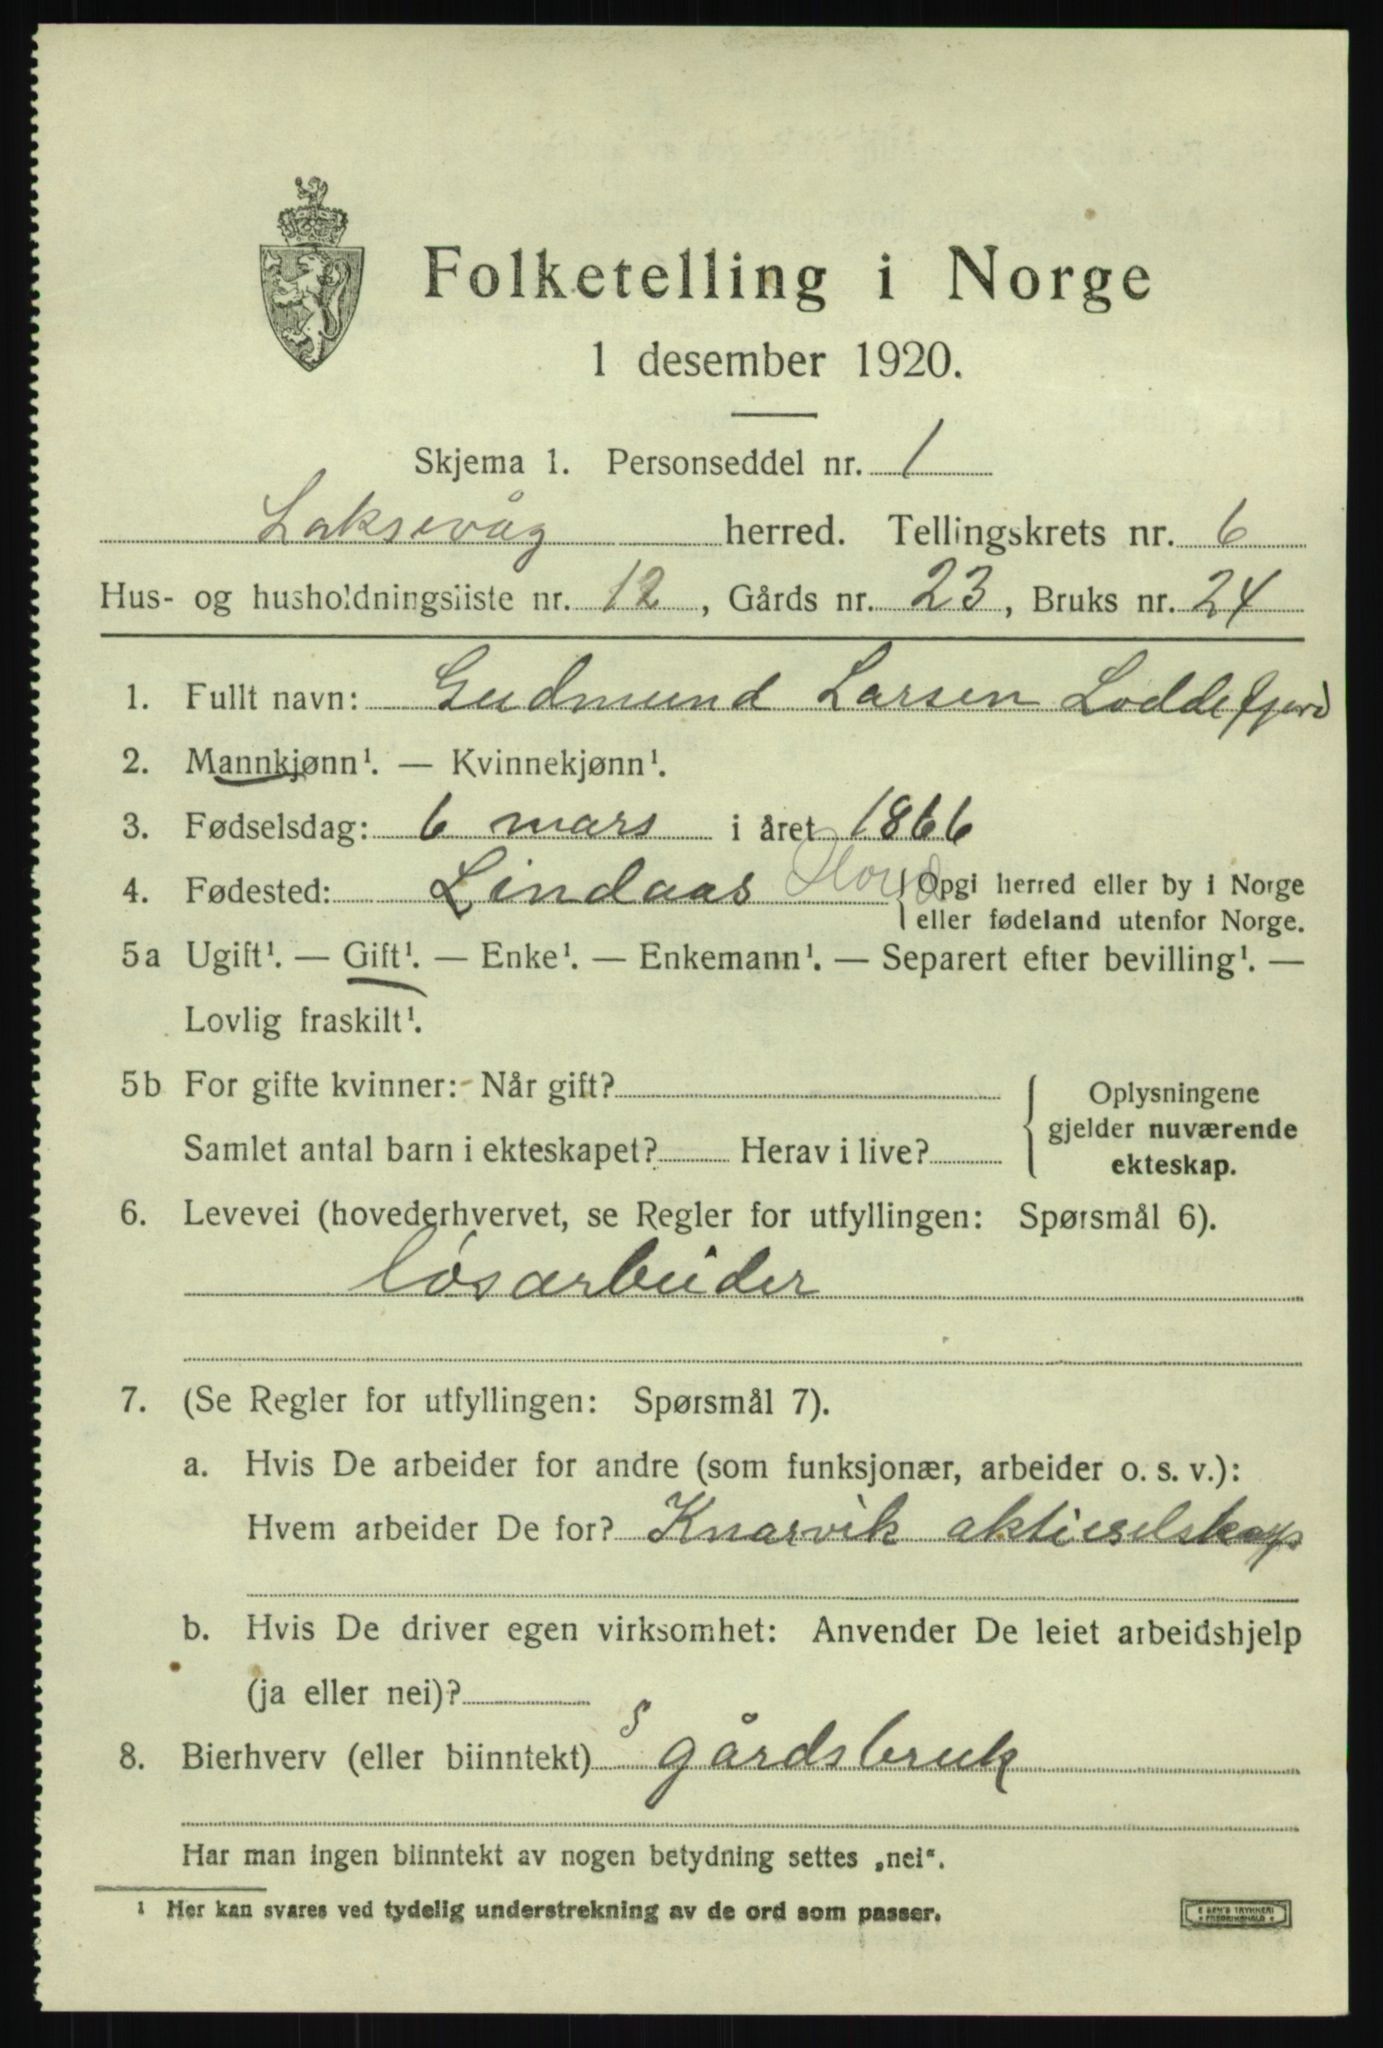 Folketelling i Norge
1 desember 1920.
Skjema 1. Personseddel nr. 1
Laksevåg herred. Tellingskrets nr. 6
Hus- og husholdningsliste nr. 12, Gårds nr. 23, Bruks nr. 24
1. Fullt navn: Gudmund Larsen Loddefjord
2. Mannkjønn¹. — Kvinnekjønn¹.
3. Fødselsdag: 6 mars i året 1866
4. Fødested: Lindaas Hord { Opgi herred eller by i Norge
eller fødeland utenfor Norge.
5a Ugift¹. — Gift¹. — Enke¹. — Enkemann¹. — Separert efter bevilling¹. —
Lovlig fraskilt¹.
5b For gifte kvinner: Når gift?
Samlet antal barn i ekteskapet? Herav i live?
{ Oplysningene
gjelder nuværende
ekteskap.
6. Levevei (hovederhvervet, se Regler for utfyllingen: Spørsmål 6).
løsarbeider
7. (Se Regler for utfyllingen: Spørsmål 7).
a. Hvis De arbeider for andre (som funksjonær, arbeider o. s. v.):
Hvem arbeider De for? Knarvik aktieselskap
b. Hvis De driver egen virksomhet: Anvender De leiet arbeidshjelp
(ja eller nei)?
8. Bierhverv (eller biinntekt) S gårdsbruk
Har man ingen biinntekt av nogen betydning settes „nei“.
¹ Her kan svares ved tydelig understrekning av de ord som passer.